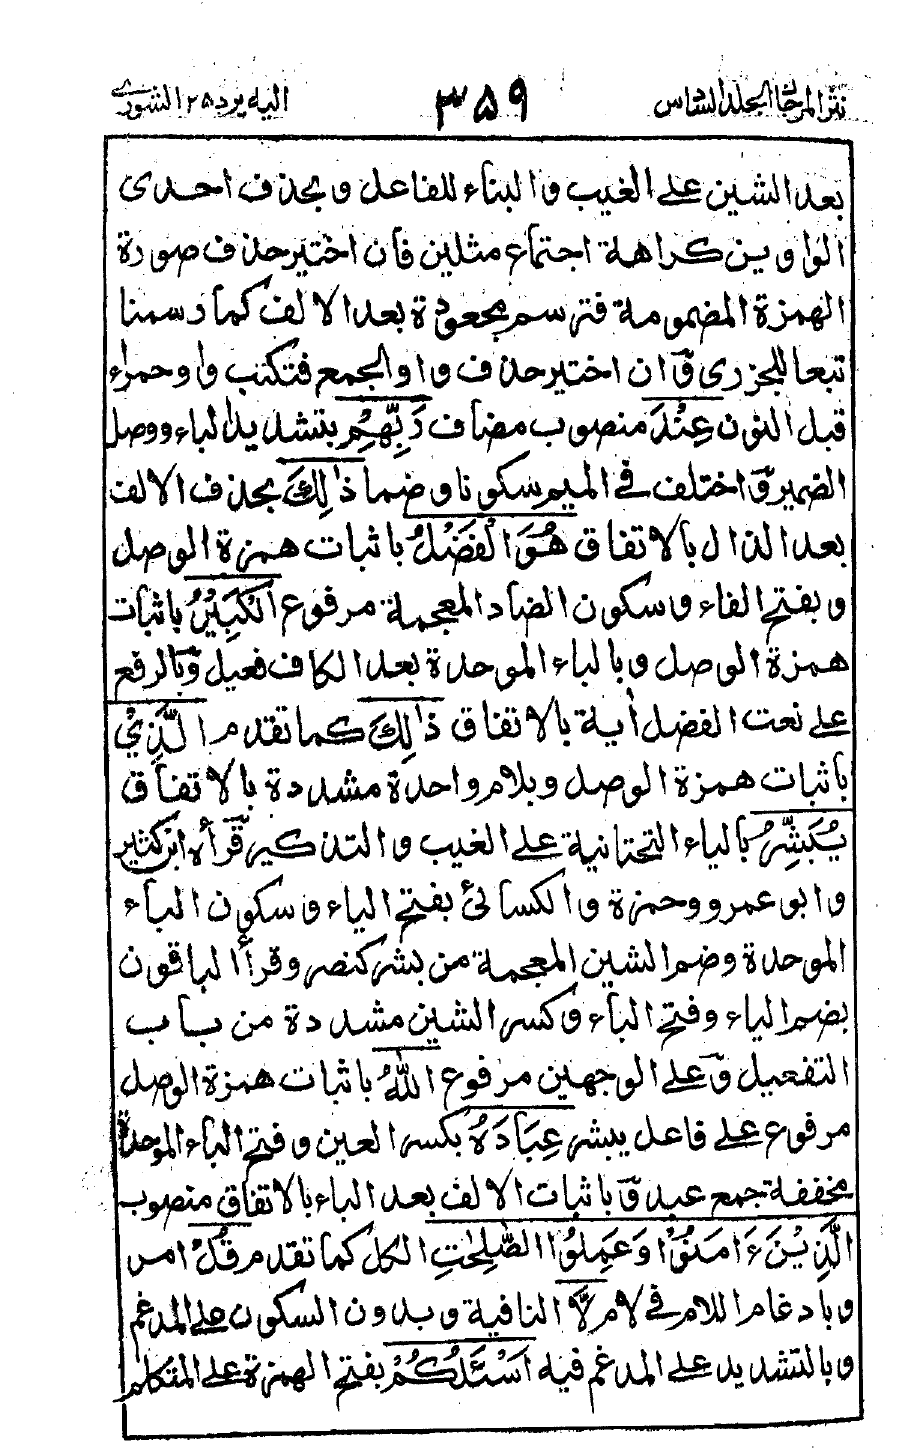 نثر المرجان الجلد السادس ٣٥٩ اليه يرد ٢٥ الشورى
بعد الشين على الغيب والبناء للفاعل وبحذف احدى
الواوين كراهة اجتماع مثلين فان اختير حذف صورة
الهمزة المضمومة فترسم بجعودة بعد الالف كما رسمنا
تبعا للجزرى وان اختير حذف واو الجمع فتكتب واو حمراء
قبل النون عِنْدَ منصوب مضاف رَبِّهِمْ بتشديد الباء ووصل
الضمير واختلف في الميم سكونا وضما ذٰلِكَ بحذف الالف
بعد الذال بالاتفاق هُوَ الْفَضْلُ باثبات همزة الوصل
وبفتح الفاء وسكون الضاد المعجمة مرفوع الْكَبِيْرُ باثبات
همزة الوصل وبالباء الموحدة بعد الكاف فعيل وبالرفع
على نعت الفضل أية بالاتفاق ذٰلِكَ كما تقدم الَّذِيْ
باثبات همزة الوصل وبلام واحدة مشددة بالاتفاق
يُبَشِّرُ بالياء التحتانية على الغيب والتذكير قرأه ابن كثير
وابو عمرو وحمزة والكسائي بفتح الياء وسكون الباء
الموحدة وضم الشين المعجمة من بشر كنصر وقرأ الباقون
بضم الياء وفتح الباء وكسر الشين مشددة من باب
التفعيل وعلى الوجهين مرفوع اللّٰهُ باثبات همزة الوصل
مرفوع على فاعل يبشر عِبَادَهُ بكسر العين وفتح الباء الموحدة
مخففة جمع عبد وباثبات الالف بعد الباء بالاتفاق منصوب
الَّذِيْنَ ءَامَنُوْا وَعَمِلُوا الصّٰلِحٰتِ الكل كما تقدم قُلْ امر
وبادغام اللام في لام لَّا النافية وبدون السكون على المدغم
وبالتشديد على المدغم فيه اَسْـَٔلُكُمْ بفتح الهمزة على المتكلم